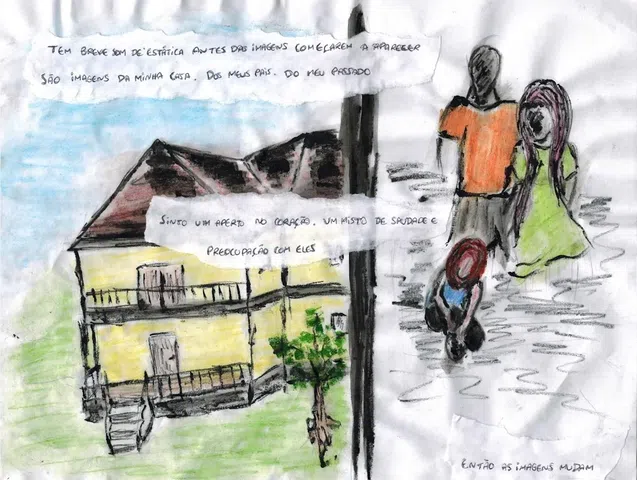 TEM BREVE SOM DE ESTÁTICA ANTES DAS IMAGENS COMEÇAREM A APARECER
SÃO IMAGENS DA MINHA CASA. DOS MEUS PAIS. DO MEU PASSADO
SINTO UM APERTO NO CORAÇÃO. UM MISTO DE SAUDADE E
PREOCUPAÇÃO COM ELES
ENTÃO AS IMAGENS MUDAM